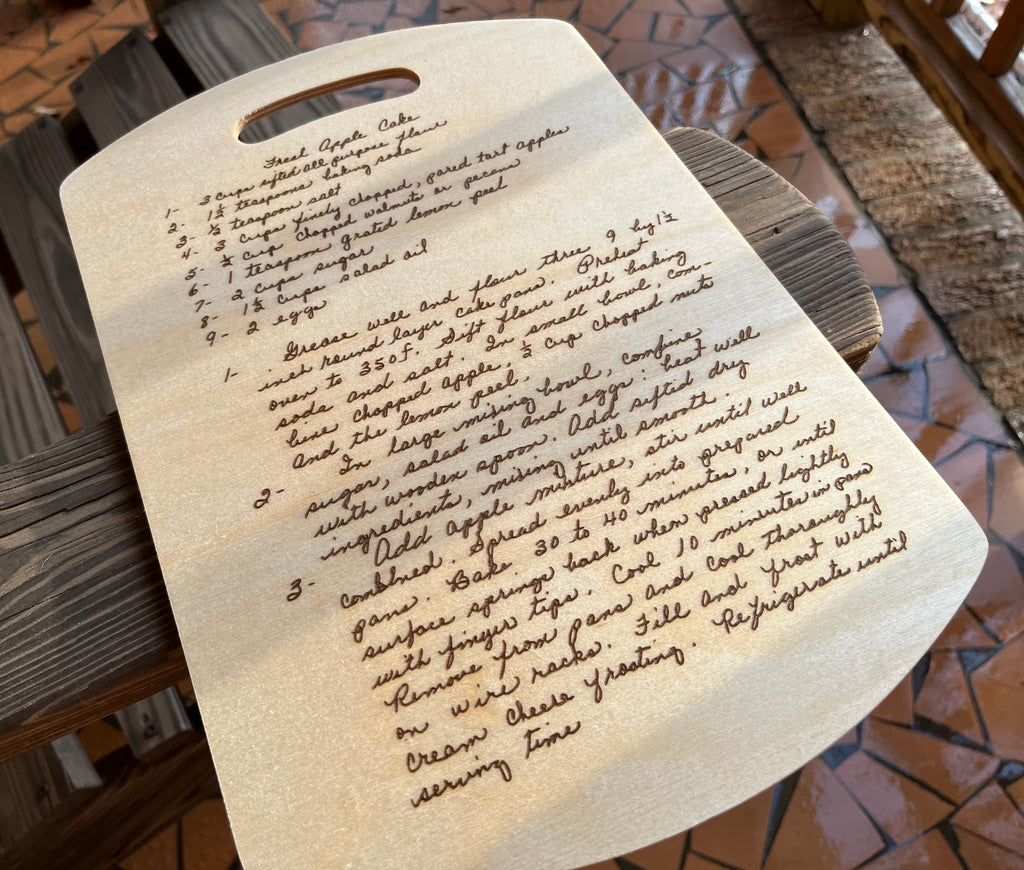 Fresh Apple Cake
1- 3 cups sifted all purpose flour
2- 1½ teaspoons baking soda
3- ½ teaspoon salt
4- 3 cups finely chopped, pared tart apples
5- ½ cup chopped walnuts or pecans
6- 1 teaspoon grated lemon peel
7- 2 cups sugar
8- 1½ cups salad oil
9- 2 eggs
1- Grease well and flour three 9 by 1½
inch round layer cake pans. Preheat
oven to 350 f. Sift flour with baking
soda and salt. In small bowl, com-
bine chopped apple, ½ cup chopped nuts
and the lemon peel.
2- In large mixing bowl, confine
sugar, salad oil and eggs: beat well
with wooden spoon. Add sifted dry
ingredients, mixing until smooth.
3- Add apple mixture, stir until well
combined. Spread evenly into prepared
pans. Bake 30 to 40 minutes, or until
surface springs back when pressed lightly
with finger tips. Cool 10 minutes in pans
Remove from pans and cool thoroughly
on wire racks. Fill and frost with
cream cheese frosting. Refrigerate until
serving time